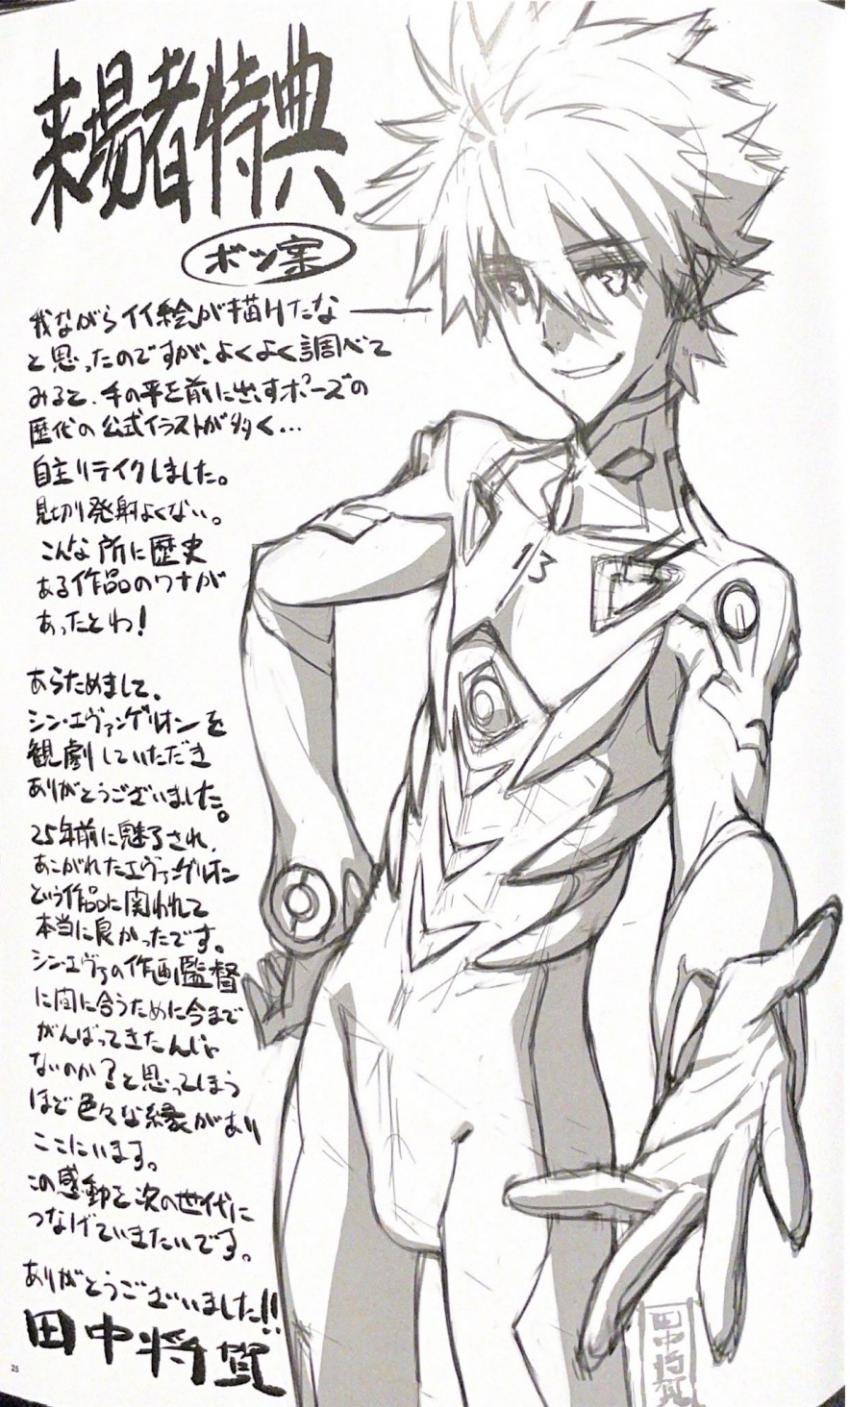 来場者特典
ボツ案
我ながらイイ絵が描けたな
と思ったのですが、よくよく調べて
みると、手の平を前に出すポーズの
歴代の公式イラストが多く…
自主リテイクしました。
見切り発射よくない。
こんな所に歴史
ある作品のワナが
あったとわ!
あらためまして、
シン・エヴァンゲリオンを
観劇していただき
ありがとうございました。
25年前に魅了され、
あこがれたエヴァンゲリオン
という作品に関われて
本当に良かったです。
シン・エヴァの作画監督
に間に合うために今まで
がんばってきたんじゃ
ないのか?と思ってしまう
ほど色々な縁があり
ここにいます。
この感動を次の世代に
つなげていきたいです。
ありがとうございました!!
田中将賀
13
田中将賀
25